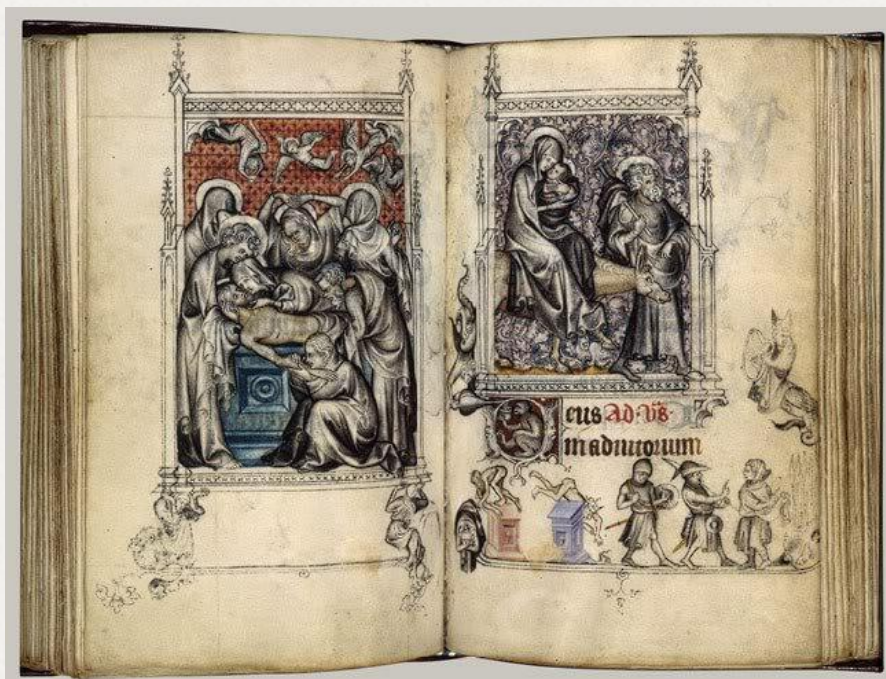 Deus Ad. vs.
in adiutorium